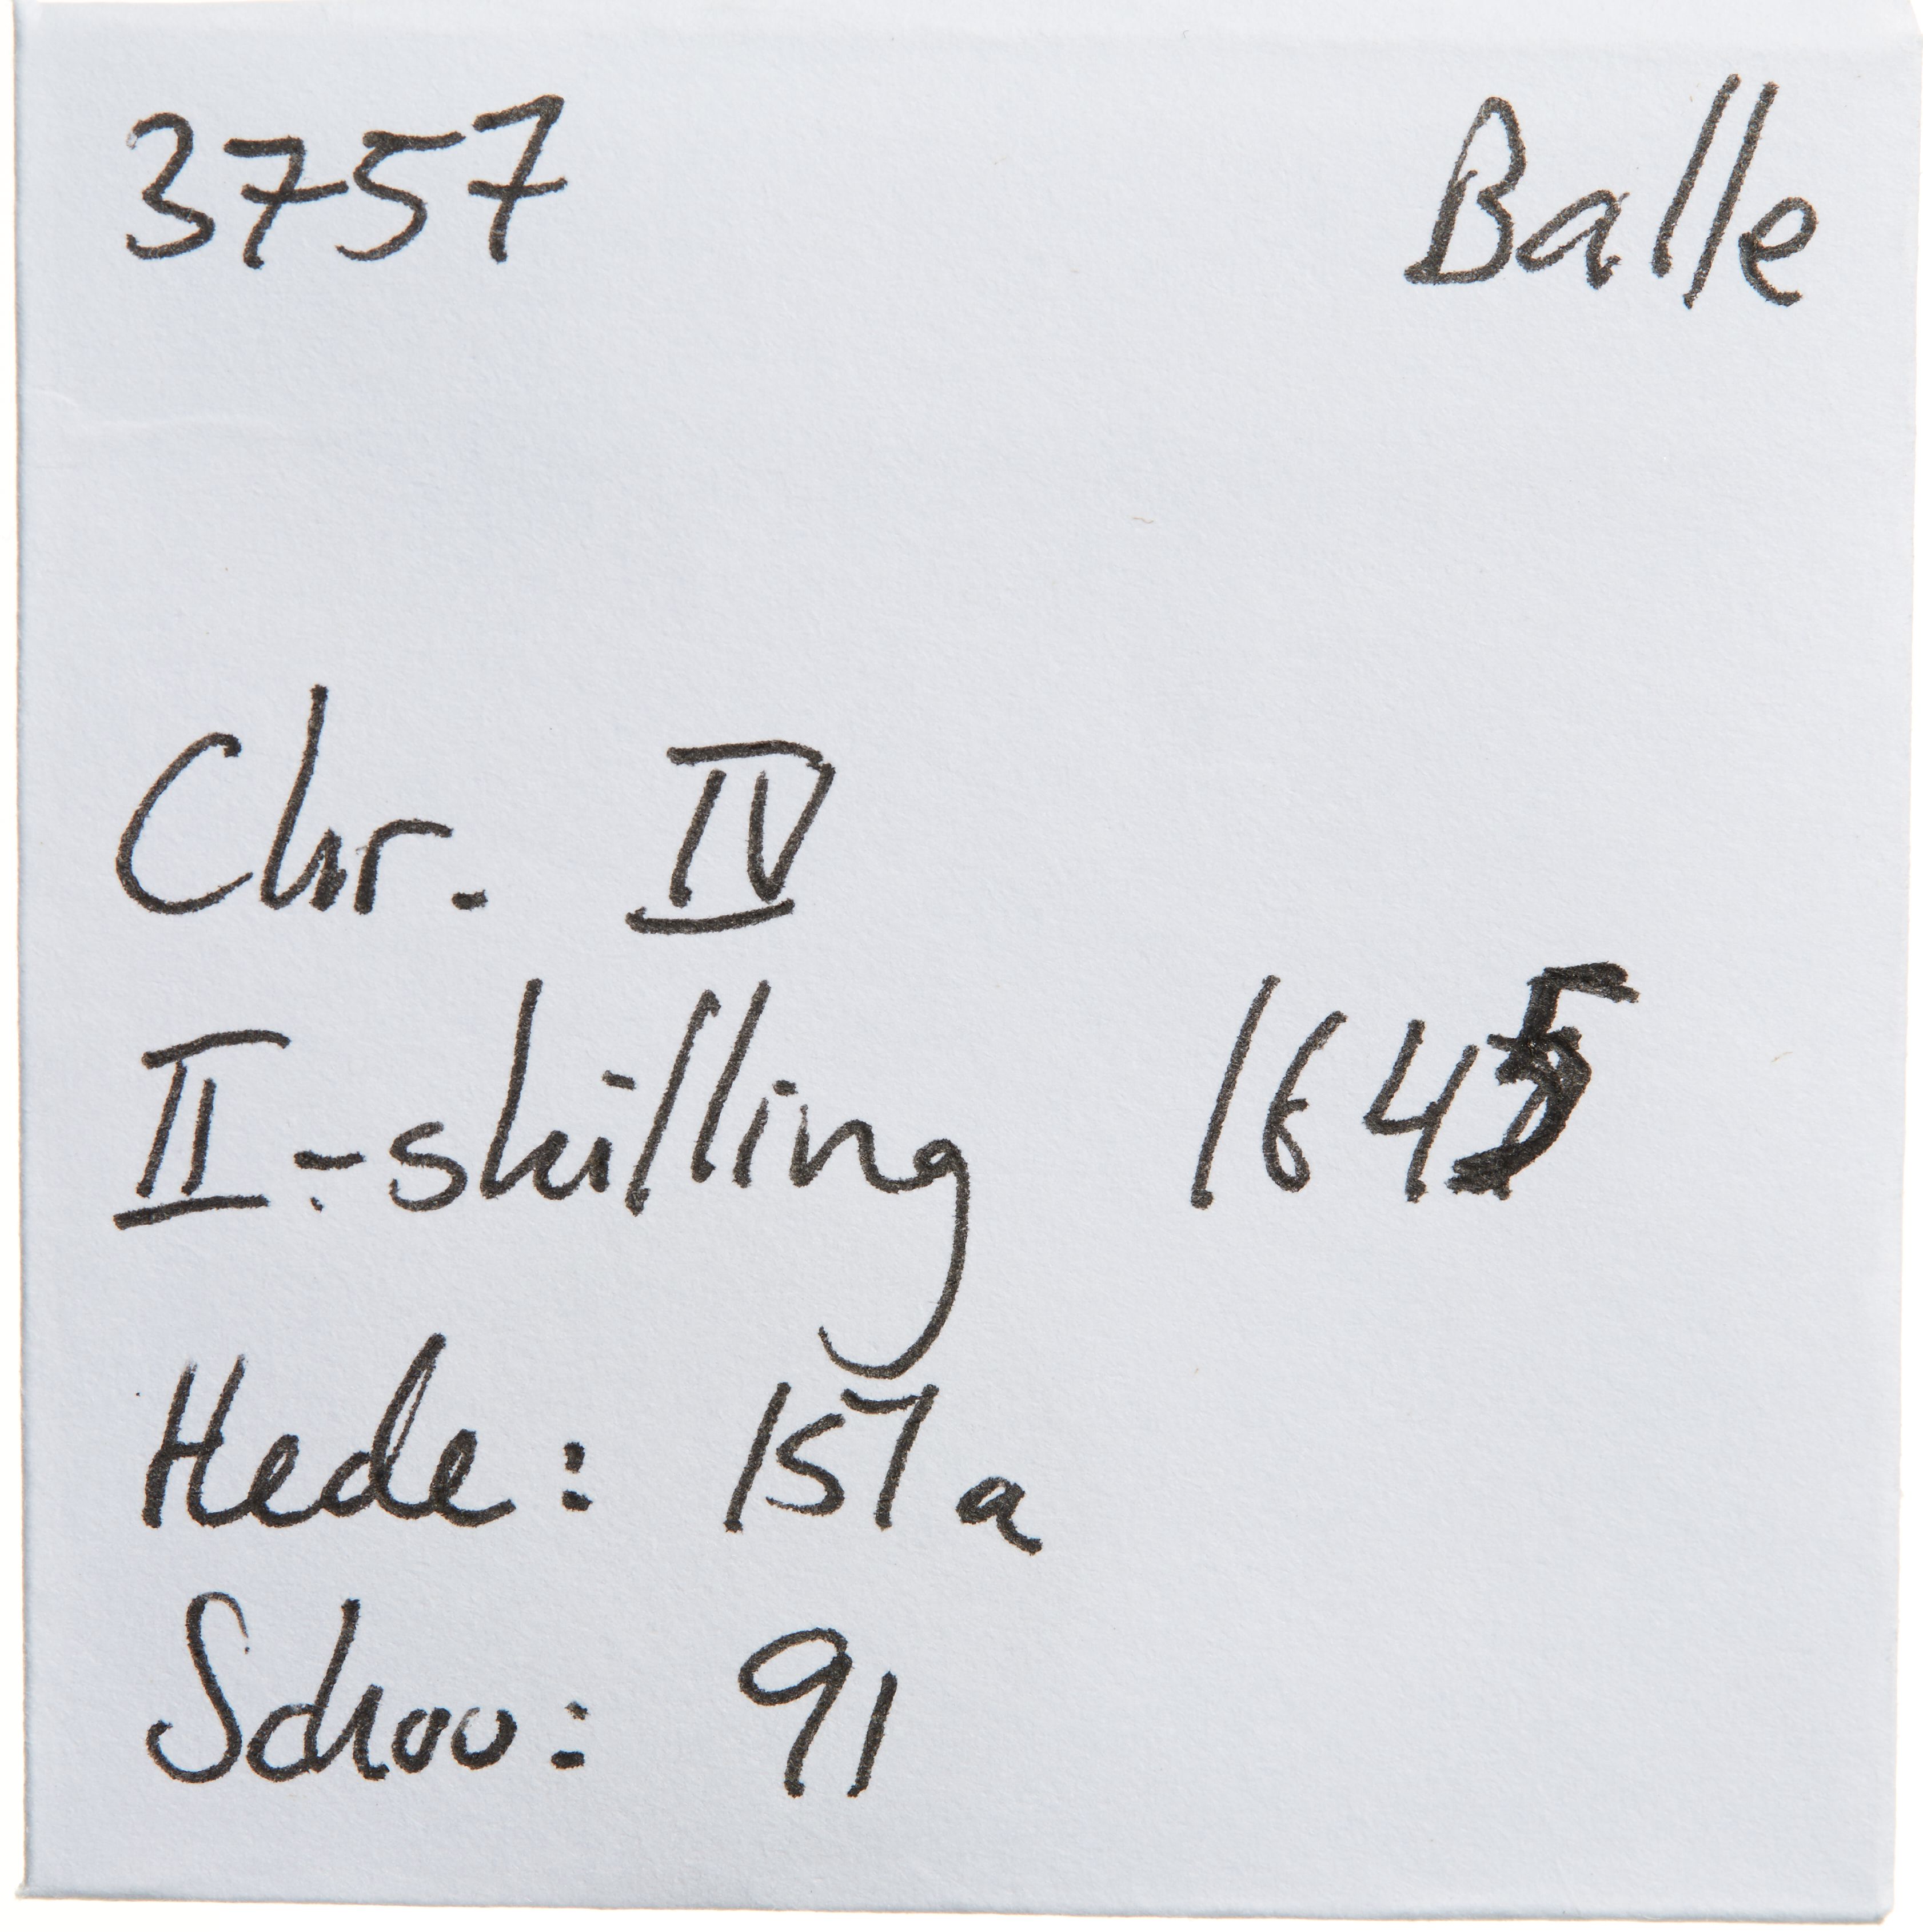 3757 Balle
Chr. IV
II-skilling 1645
Hede: 157a
Schou: 91